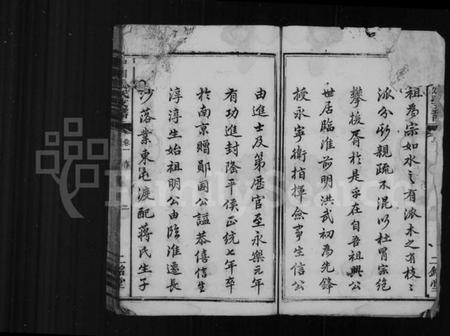 祖為宗如水之有派木之有枝之
派分以親疏不混以杜冒宗絕
攀援胥於是乎在自吾祖興公
世居臨淮前明洪武初為先鋒
授永寧衛指揮僉事生信公
由進士及第歷官至永樂元年
有功進封隆平侯正統七年卒
於南京贈鄖國公諡恭僖信生
淳淳生始祖明公由臨淮遷長
沙落業東屯渡配蔣氏生子
FamilySearch